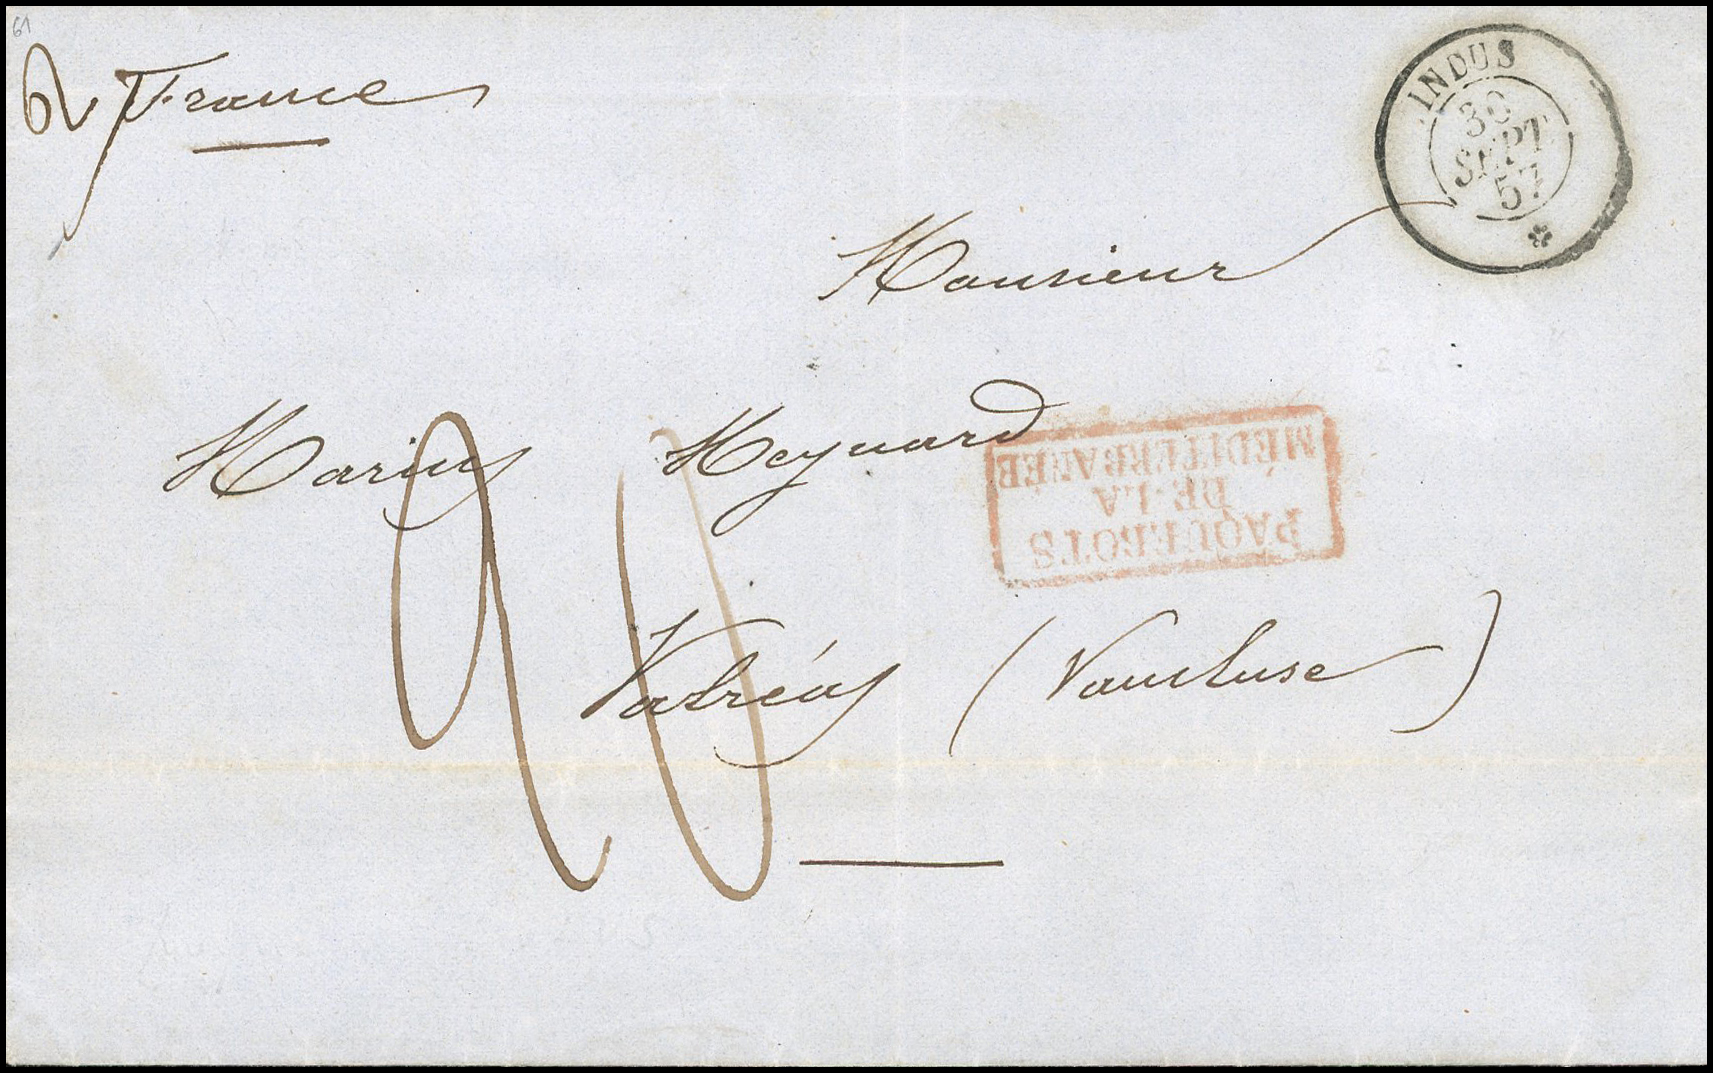 61
France
INDUS
30
SEPT.
57
Monsieur
Marius Meynard
PAQUEBOTS
DE LA
MÉDITERRANÉE
Valréas (Vaucluse)